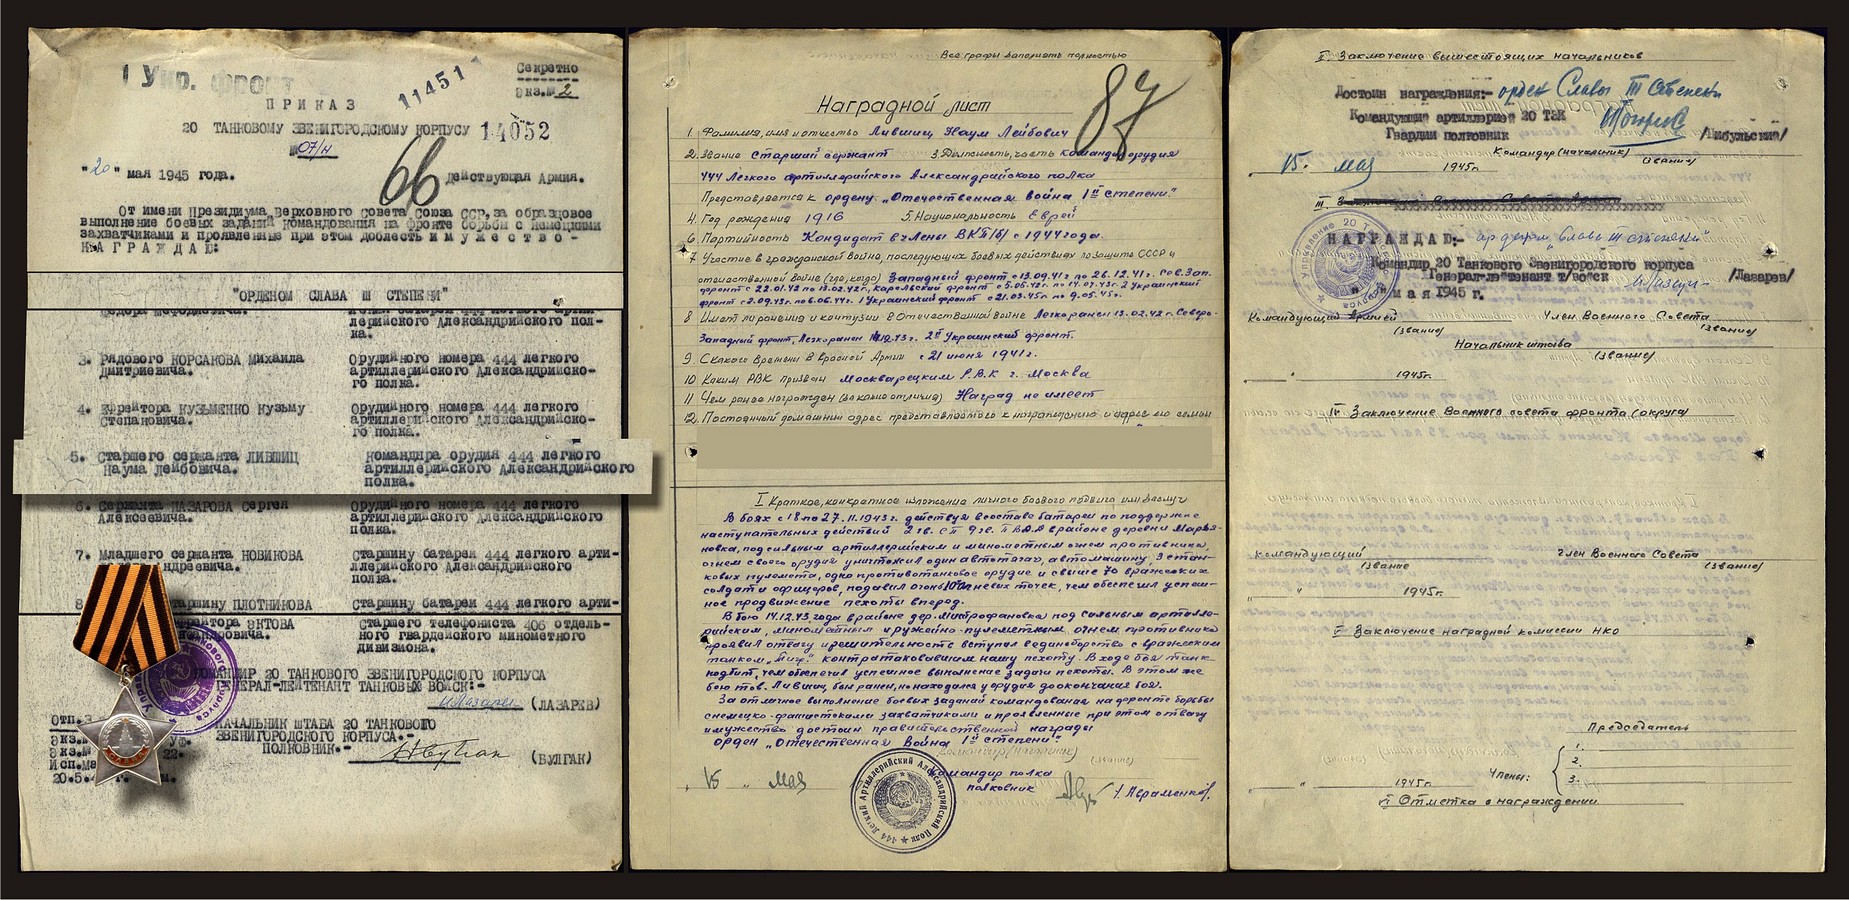 1 Укр. фронт
11451
Секретно
экз.№ 2
ПРИКАЗ
20 ТАНКОВОМУ ЗВЕНИГОРОДСКОМУ КОРПУСУ
14052
№ 07/н
66
"20" мая 1945 года.
Действующая Армия.
От имени Президиума Верховного Совета Союза ССР, за образцовое
выполнение боевых заданий командования на фронте борьбы с немецкими
захватчиками и проявленные при этом доблесть и мужество -
НАГРАЖДАЮ:
"ОРДЕНОМ СЛАВА III СТЕПЕНИ"
лерийского Александрийского пол-
ка.
3. Рядового КОРСАКОВА Михаила
Дмитриевича.
Орудийного номера 444 легкого
артиллерийского Александрийско-
го полка.
4. Ефрейтора КУЗЬМЕНКО Кузьму
Степановича.
Орудийного номера 444 легкого
артиллерийского Александрийско-
го полка.
5. Старшего сержанта ЛИВШИЦ
Наума Лейбовича.
Командира орудия 444 легкого
артиллерийского Александрийского
полка.
6. Сержанта НАЗАРОВА Сергея
Алексеевича.
Орудийного номера 444 легкого
артиллерийского Александрийского
полка.
7. Младшего сержанта НОВИКОВА
ндреевича.
Старшину батареи 444 легкого арти-
ллерийского Александрийского
полка.
8
таршину ПЛОТНИКОВА
Старшину батареи 444 легкого арти-
ЭКТОВА
Старшего телефониста 406 отдель-
ного гвардейского минометного
дивизиона.
КОМАНДИР 20 ТАНКОВОГО ЗВЕНИГОРОДСКОГО КОРПУСА
ГЕНЕРАЛ-ЛЕЙТЕНАНТ ТАНКОВЫХ ВОЙСК:-
(ЛАЗАРЕВ)
НАЧАЛЬНИК ШТАБА 20 ТАНКОВОГО
ЗВЕНИГОРОДСКОГО КОРПУСА.-
ПОЛКОВНИК.-
(БУЛГАК)
Отп.3
экз.№
экз.№
22.
Исп.ма
20.5.4
Все графы заполнять полностью
87
Наградной лист
1. Фамилия, имя и отчество Лившиц Наум Лейбович
2. Звание Старший сержант 3. Должность, часть командир орудия
444 Легкого артиллерийского Александрийского полка
Представляется к ордену „Отечественная война Iой степени".
4. Год рождения 1916 5. Национальность Еврей
6. Партийность Кандидат в члены ВКП(б) с 1944 года.
7 Участие в гражданской войне, последующих боевых действиях по защите СССР и
отечественной войне (где, когда) Западный фронт с 13.09.41г по 26.12.41г. Сев.Зап.
фронт с 22.01.42 по 13.02.42г, Карельский фронт с 5.07.42г по 14.07.43г. 2 Украинский
фронт с 2.09.43г. по 6.06.44г. 1 Украинский фронт с 21.03.45г. по 9.05.45г.
8 Имеет ли ранения и контузии в Отечественной войне Легко ранен 13.02.42г. Северо-
Западный фронт, Легко ранен 14.12.43г. 2й Украинский фронт.
9 С какого времени в Красной Армии с 21 июня 1941г.
10 Каким РВК призван Москварецким Р.В.К г. Москва
11 Чем ранее награжден (за какие отличия) Наград не имеет
12. Постоянный домашний адрес представляемого к награждению и адрес его семьи
I Краткое, конкретное изложение личного боевого подвига или заслуг
В боях с 18 по 27.11.1943г. действуя в составе батареи по поддержке
наступательных действий 2 гв. СП 9 гв. ПВДД в районе деревни Марья-
новка, под сильным артиллерийским и минометным огнем противника,
огнем своего орудия уничтожил один автотягач, автомашину, 3 стан-
ковых пулемета, одно противотанковое орудие и свыше 70 вражеских
солдат и офицеров, подавил огонь 10 огневых точек, чем обеспечил успеш-
ное продвижение пехоты вперед.
В бою 14.12.43 года в районе дер. Митрофановка под сильным артилле-
рийским, минометным и ружейно-пулеметным, огнем противника
проявил отвагу и решительность вступил в единоборство с вражеским
танком „Тигр" контратаковавшим нашу пехоту. В ходе боя танк
подбит, чем обеспечил успешное выполнение задачи пехоты. В этом же
бою тов. Лившиц был ранен, но находился у орудия до окончания боя.
За отличное выполнение боевых заданий командования на фронте борьбы
с немецко-фашистскими захватчиками и проявленные при этом отвагу
и мужество достоин правительственной награды
орден „Отечественная Война Iой степени".
Командир (начальник)
(звание)
Командир полка
полковник
/Авраменко/.
„ 15 " Мая
444 Легкий Артиллерийский Александрийский Полк
II. Заключение вышестоящих начальников
Достоин награждения:- орден Славы III Степени
Командующий артиллерией 20 ТЗК
Гвардии полковник /Цибульский/
Командир (начальник)
(звание)
15. мая 1945г.
III.
НАГРАЖДАЮ:- орденом „Слава III степени"
Командир 20 Танкового Звенигородского корпуса
Генерал-лейтенант т/войск /Лазарев/
" " мая 1945 г.
Командующий Армией
(звание)
Член Военного Совета
(звание)
Начальник штаба
(звание)
1945г.
IV Заключение Военного совета фронта (округа)
Командующий
(звание)
Член Военного Совета
(звание)
" 1945г.
V Заключение наградной комиссии НКО
Председатель
Члены:
1.
2.
3.
„ " 1945г.
VI Отметка о награждении